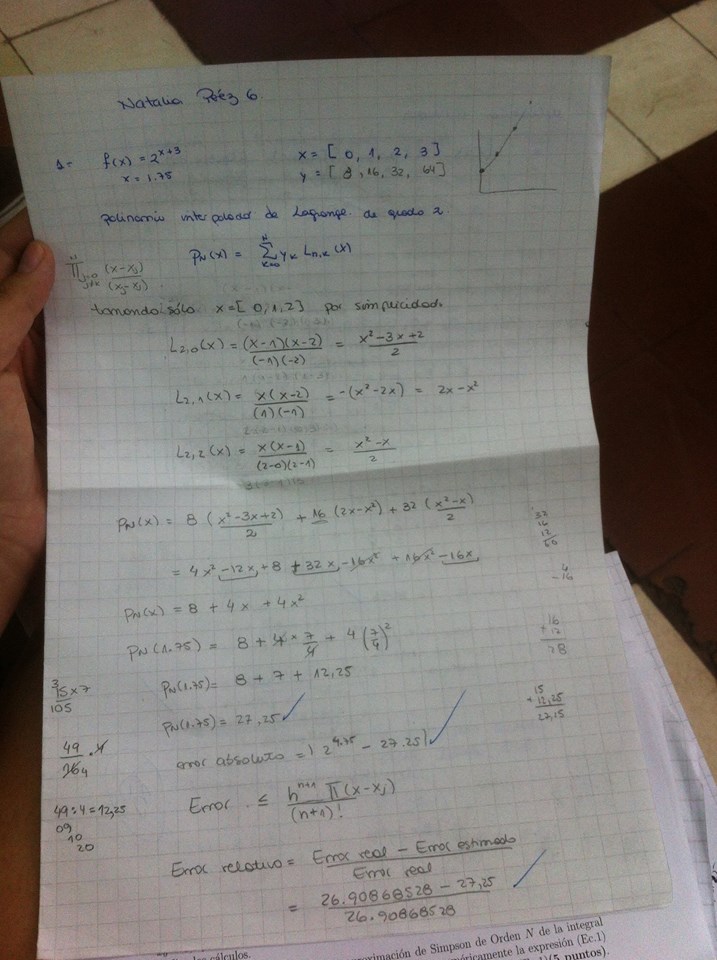 Natalia Pérez 6
1- f(x) = 2^{x+3}
x = 1.75
x = [ 0, 1, 2, 3 ]
y = [ 8, 16, 32, 64 ]
polinomio interpolador de Lagrange de grado 2.
P_N(x) = \sum_{k=0}^{N} y_k L_{n,k}(x)
\prod_{j=0, j≠k}^{N} (x-x_j)/(x_j-x_j)
tomando sólo x=[ 0, 1, 2 ] por simplicidad.
L_{2,0}(x) = (x-1)(x-2)/(-1)(-2) = (x²-3x+2)/2
L_{2,1}(x) = x(x-2)/(1)(-1) = -(x²-2x) = 2x-x²
L_{2,2}(x) = x(x-1)/(2-0)(2-1) = (x²-x)/2
P_N(x) = 8 (x²-3x+2)/2 + 16 (2x-x²) + 32 (x²-x)/2
= 4x² -12x +8 +32x -16x² +16x² -16x
P_N(x) = 8 + 4x + 4x²
P_N(1.75) = 8 + 4 × 7/4 + 4 (7/4)²
P_N(1.75) = 8 + 7 + 12,25
P_N(1.75) = 27,25
error absoluto = | 2^{4.75} - 27.25 |
Error ≤ h^{n+1} ∏(x-x_j)/(n+1)!
Error relativo = (Error real - Error estimado)/Error real
= (26.90868528 - 27,25)/26.90868528
32
16
12
60
4
-16
16
+ 12
28
15
+ 12,25
27,15
3
15 × 7
105
49/16 4 · 4
49:4 = 12,25
09
10
20
cálculos.
roximación de Simpson de Orden N de la integral
méricamente la expresión (Ec.1)
(5 puntos).